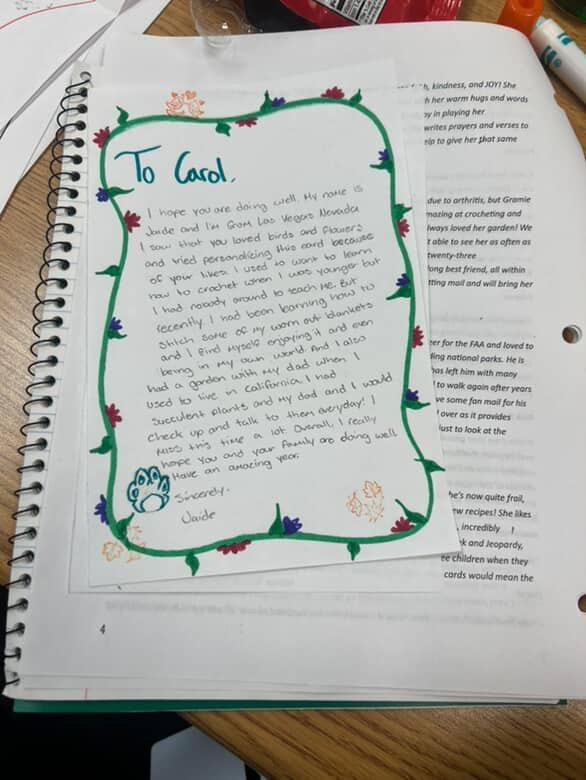 To Carol,
I hope you are doing well. My name is
Jaide and I'm from Las Vegas Nevada
I saw that you loved birds and flowers
and tried personalizing this card because
of your likes. I used to want to learn
how to crochet when I was younger but
I had nobody around to teach me. But
recently I had been learning how to
stitch some of my worn out blankets
and I find myself enjoying it and even
being in my own world. And I also
had a garden with my dad when I
used to live in California. I had
succulent plants and my dad and I would
check up and talk to them everyday! I
miss this time a lot. Overall, I really
hope you and your family are doing well
Have an amazing year.
Sincerely.
Jaide
h, kindness, and JOY! She
h her warm hugs and words
oy in playing her
writes prayers and verses to
elp to give her that same
due to arthritis, but Gramie
mazing at crocheting and
lways loved her garden! We
t able to see her as often as
twenty-three
ong best friend, all within
tting mail and will bring her
er for the FAA and loved to
ding national parks. He is
has left him with many
to walk again after years
ve some fan mail for his
over as it provides
ust to look at the
he's now quite frail,
ew recipes! She likes
, incredibly
k and Jeopardy,
ee children when they
cards would mean the
4